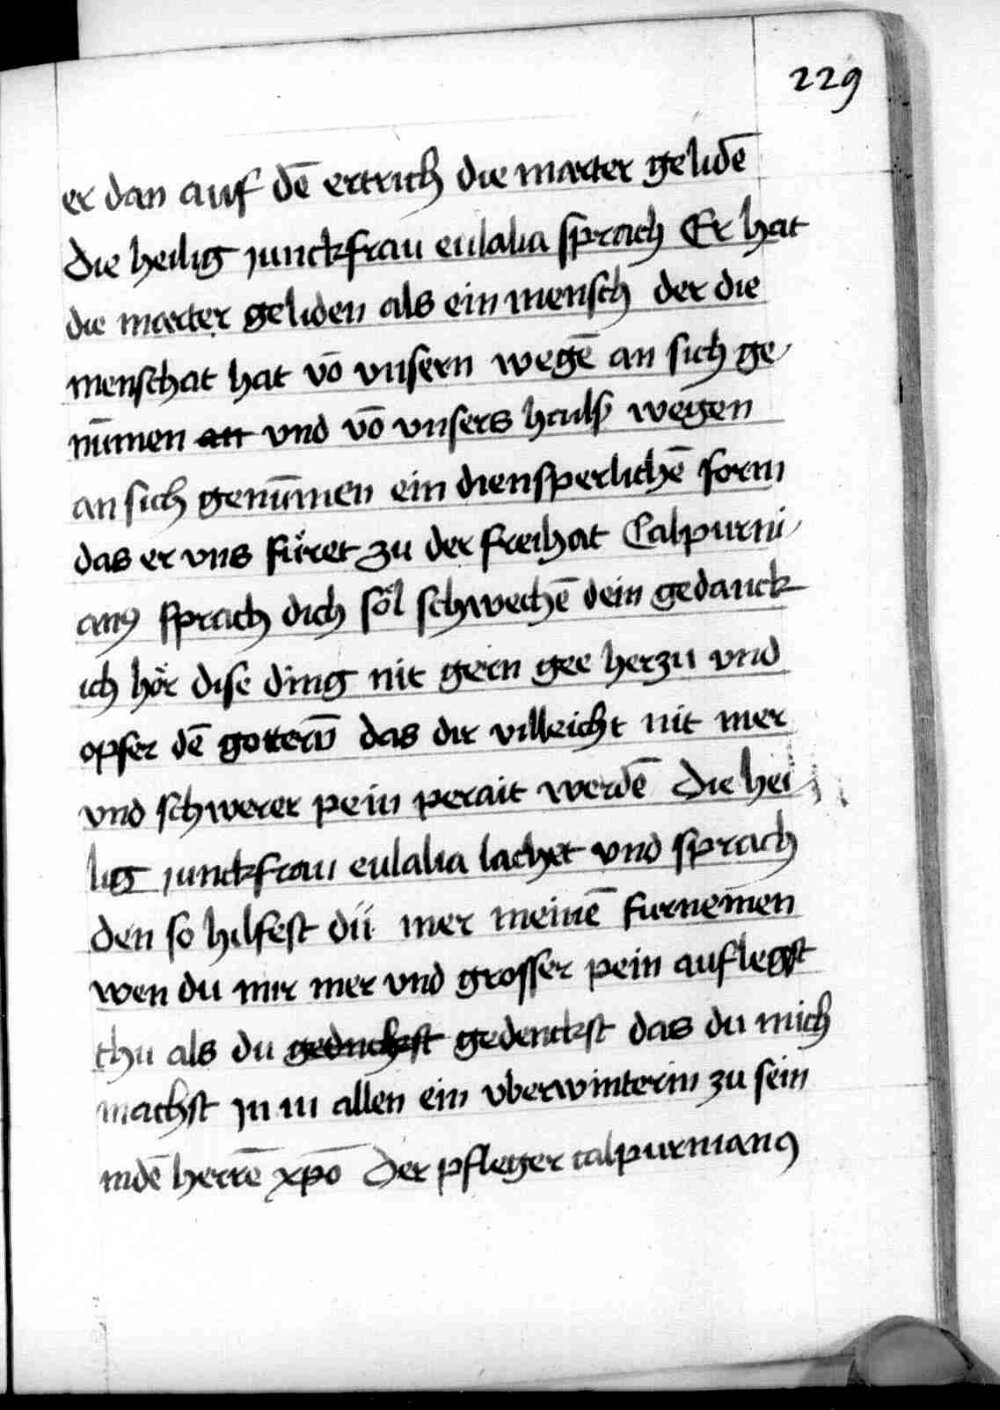 229
er dan auf dē ertrich die marter gelidē
die heilig junckfrau eulalia sprach Er hat
die marter geliden als ein mensch der die
menschat hat vō vnsern wegē an sich ge
nūmen an und vō vnsers hails wegen
an sich genūmen ein diensperlichē form
das er vns fu̍ret zu der freihat Calpurni
anꝰ sprach dich söl schwechē dein gedanck
ich hör dise ding nit gern gee herzu vnd
opfer dē gotterū das dir villeicht nit mer
vnd schwerer pein perait werdē Die hei
lig junckfrau eulalia lachet vnd sprach
den so hilfest dü mer meinē furnemen
wen du mir mer vnd grosser pein auflegst
thu als du gednckst gedenckst das du mich
machst jn in allen ein vberwinterin zu sein
in dē herrē xp̄o Der pfleger calpurnianꝰ